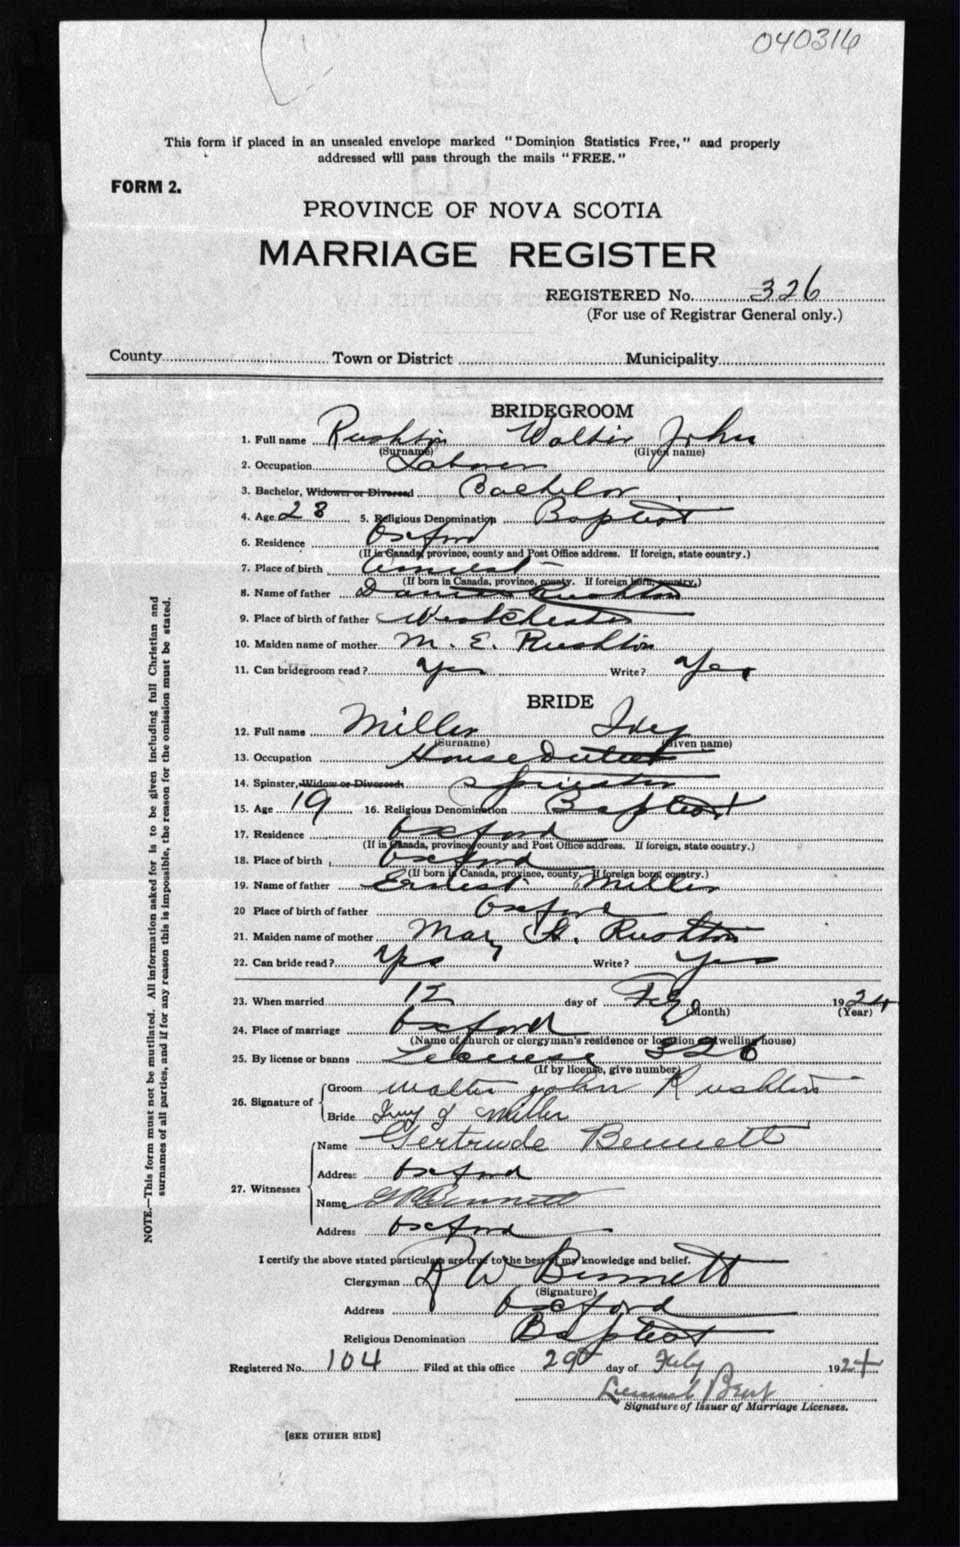 040316
This form if placed in an unsealed envelope marked "Dominion Statistics Free," and properly
addressed will pass through the mails "FREE."
FORM 2.
PROVINCE OF NOVA SCOTIA
MARRIAGE REGISTER
REGISTERED No. 326
(For use of Registrar General only.)
County Town or District Municipality
BRIDEGROOM
1. Full name Rushton Walter John
(Surname) (Given name)
2. Occupation Laborer
3. Bachelor, Widower or Divorced Bachelor
4. Age 23 5. Religious Denomination Baptist
6. Residence Oxford
(If in Canada, province, county and Post Office address. If foreign, state country.)
7. Place of birth
(If born in Canada, province, county. If foreign born, country.)
8. Name of father Rushton
9. Place of birth of father Westchester
10. Maiden name of mother M. E. Rushton
11. Can bridegroom read? Yes Write? Yes
BRIDE
12. Full name Miller Ivey
(Surname) (Given name)
13. Occupation House Duties
14. Spinster, Widow or Divorced: Spinster
15. Age 19 16. Religious Denomination Baptist
17. Residence Oxford
(If in Canada, province, county and Post Office address. If foreign, state country.)
18. Place of birth Oxford
(If born in Canada, province, county. If foreign born, country.)
19. Name of father Ernest Miller
20 Place of birth of father Oxford
21. Maiden name of mother Mary A. Rushton
22. Can bride read? Yes Write? Yes
23. When married 12 day of 1924
(Month) (Year)
24. Place of marriage Oxford
(Name of church or clergyman's residence or location of dwelling house)
25. By license or banns 326
(If by license, give number)
26. Signature of Groom Walter john Rushton
Bride J Miller
27. Witnesses Name Gertrude Bennett
Address Oxford
Name Bennett
Address Oxford
I certify the above stated particulars are true to the best of my knowledge and belief.
Clergyman R W Bennett
(Signature)
Address Oxford
Religious Denomination Baptist
Registered No. 104 Filed at this office 29 day of 1924
Signature of Issuer of Marriage Licenses.
[SEE OTHER SIDE]
NOTE.—This form must not be mutilated. All information asked for is to be given including full Christian and
surnames of all parties, and if for any reason this is impossible, the reason for the omission must be stated.